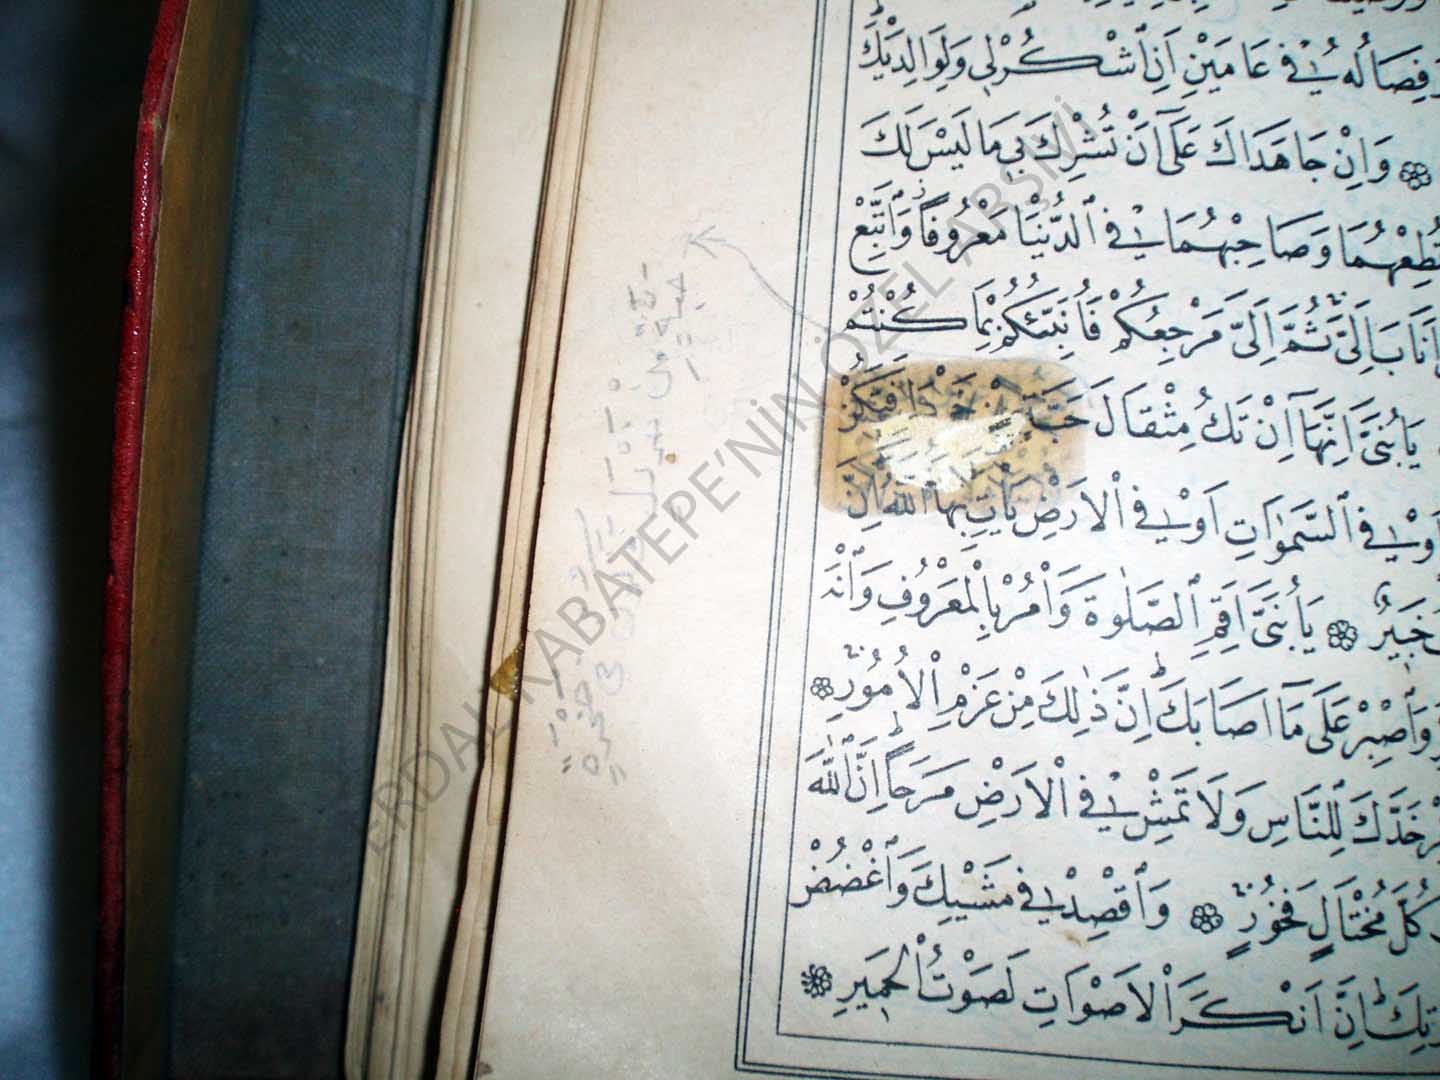 وَفِصَالُهُ فِي عَامَيْنِ اَنِ اشْكُرْ لِي وَلِوَالِدَيْكَ
وَاِنْ جَاهَدَاكَ عَلٰٓى اَنْ تُشْرِكَ بِي مَا لَيْسَ لَكَ
تُطِعْهُمَا وَصَاحِبْهُمَا فِي الدُّنْيَا مَعْرُوفًا وَاتَّبِعْ
اَنَابَ اِلَيَّ ثُمَّ اِلَيَّ مَرْجِعُكُمْ فَاُنَبِّئُكُمْ بِمَا كُنْتُمْ
يَا بُنَيَّ اِنَّهَٓا اِنْ تَكُ مِثْقَالَ حَبَّةٍ فَتَكُنْ
اَوْ فِي السَّمٰوَاتِ اَوْ فِي الْاَرْضِ يَأْتِ بِهَا اللّٰهُ اِنَّ
خَبِيرٌ يَا بُنَيَّ اَقِمِ الصَّلٰوةَ وَأْمُرْ بِالْمَعْرُوفِ وَانْهَ
وَاصْبِرْ عَلٰى مَٓا اَصَابَكَ اِنَّ ذٰلِكَ مِنْ عَزْمِ الْاُمُورِ
خَدَّكَ لِلنَّاسِ وَلَا تَمْشِ فِي الْاَرْضِ مَرَحًا اِنَّ اللّٰهَ
كُلَّ مُخْتَالٍ فَخُورٍ وَاقْصِدْ فِي مَشْيِكَ وَاغْضُضْ
اِنَّ اَنْكَرَ الْاَصْوَاتِ لَصَوْتُ الْحَمِيرِ
حَبَّةٍ مِنْ خَرْدَلٍ
فَتَكُنْ فِي صَخْرَةٍ
ERDAL KABATEPE'NİN ÖZEL ARŞİVİ